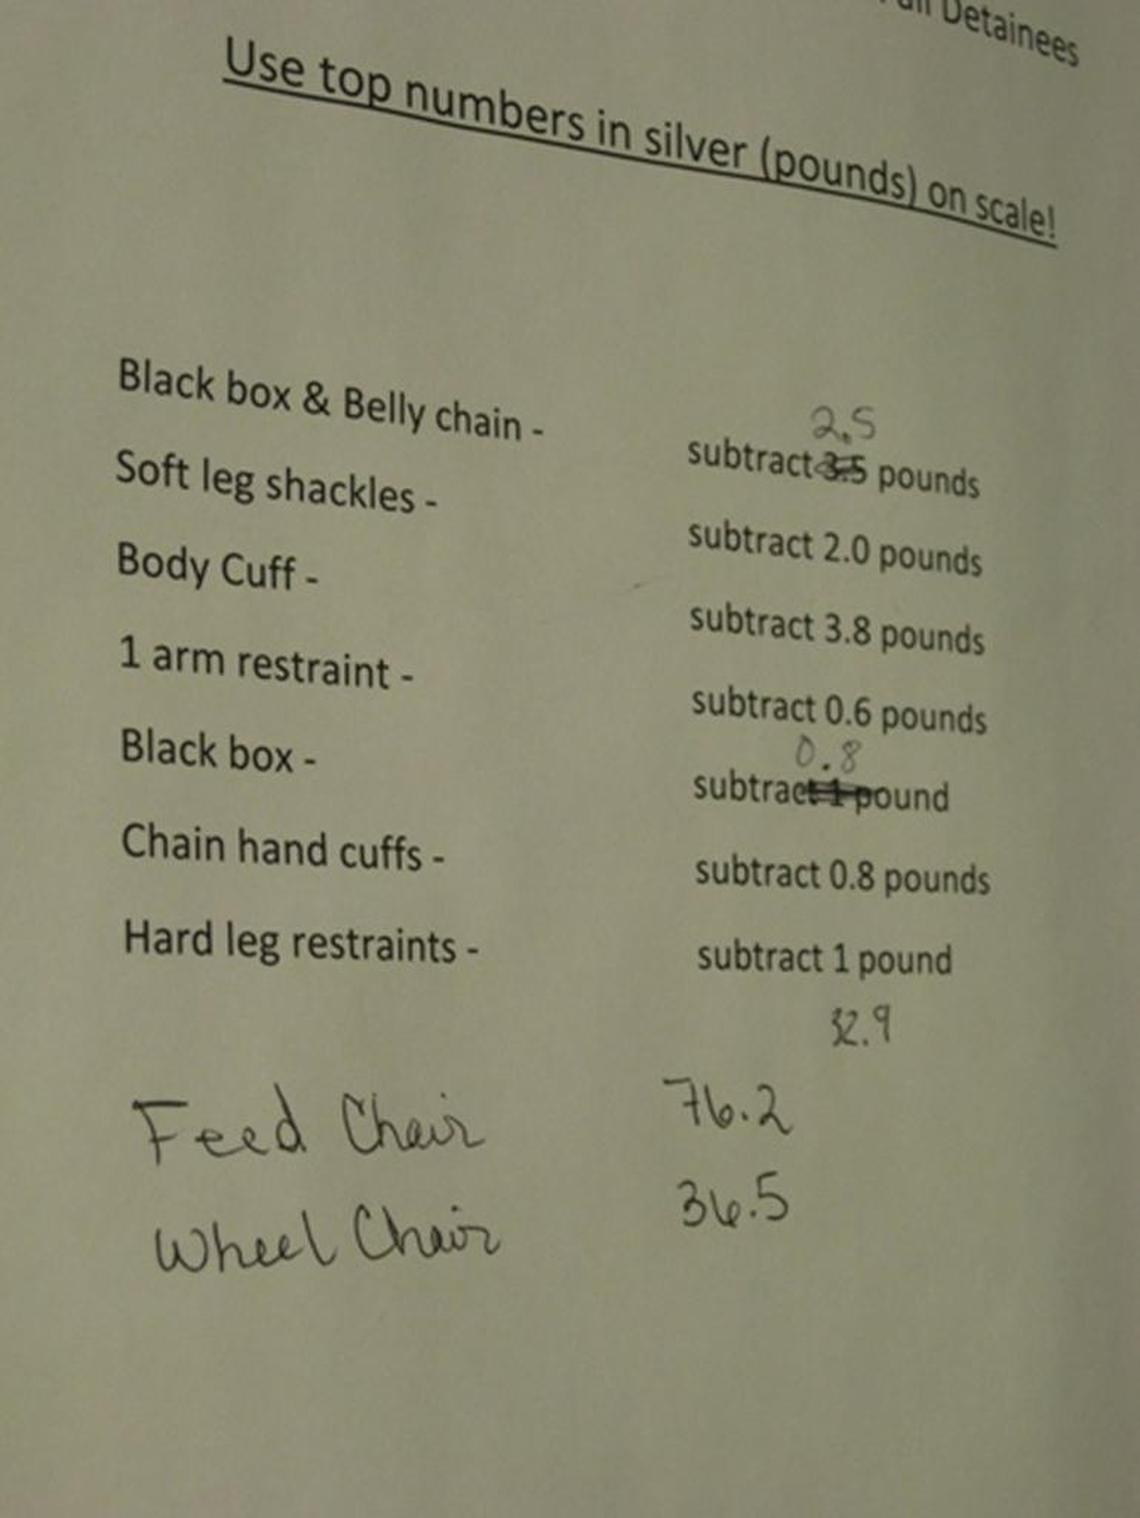 all Detainees
Use top numbers in silver (pounds) on scale!
Black box & Belly chain - subtract 3.5 pounds
2.5
Soft leg shackles - subtract 2.0 pounds
Body Cuff - subtract 3.8 pounds
1 arm restraint - subtract 0.6 pounds
Black box - subtract 1 pound
0.8
Chain hand cuffs - subtract 0.8 pounds
Hard leg restraints - subtract 1 pound
32.9
Feed Chair 76.2
Wheel Chair 36.5